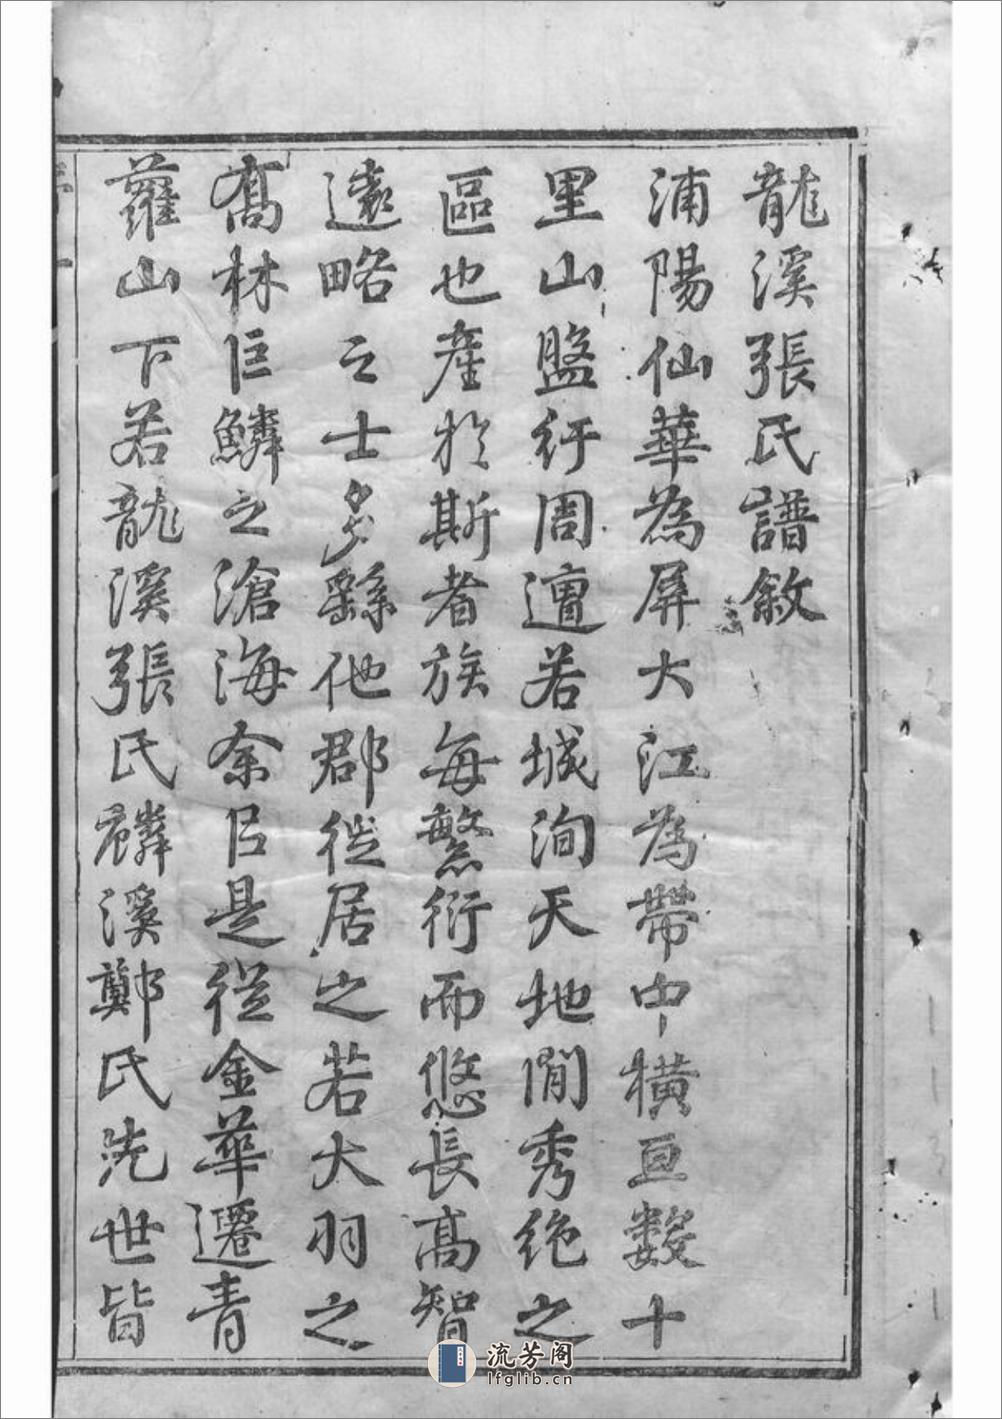 龍溪張氏譜敘
浦陽仙華為屏大江為帶中橫亘數十
里山盤紆周遭若城洵天地間秀絶之
區也產於斯者族每繁衍而悠長高智
遠略之士多繇他郡徙居之若大羽之
喬林巨鱗之滄海余以是從金華遷青
蘿山下若龍溪張氏麟溪鄭氏先世皆
流芳阁
lfglib.cn